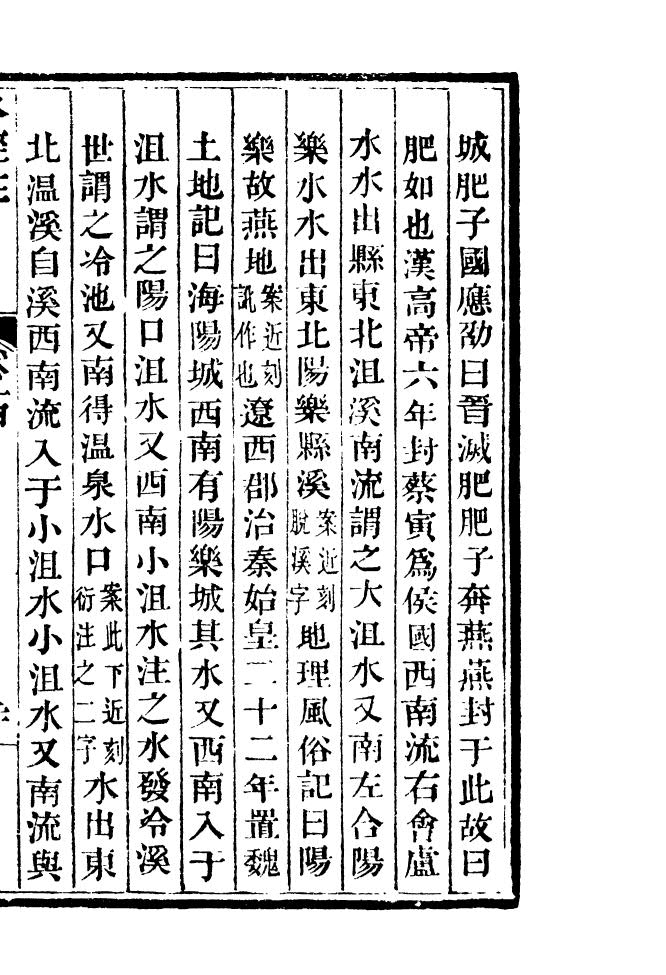 城肥子國應劭曰晉滅肥肥子奔燕燕封于此故曰
肥如也漢高帝六年封蔡寅爲侯國西南流右會盧
水水出縣東北沮溪南流謂之大沮水又南左合陽
樂水水出東北陽樂縣溪案近刻脫溪字地理風俗記曰陽
樂故燕地案近刻訛作也遼西郡治秦始皇二十二年置魏
土地記曰海陽城西南有陽樂城其水又西南入于
沮水謂之陽口沮水又西南小沮水注之水發冷溪
世謂之冷池又南得溫泉水口案此下近刻衍注之二字水出東
北溫溪自溪西南流入于小沮水小沮水又南流與